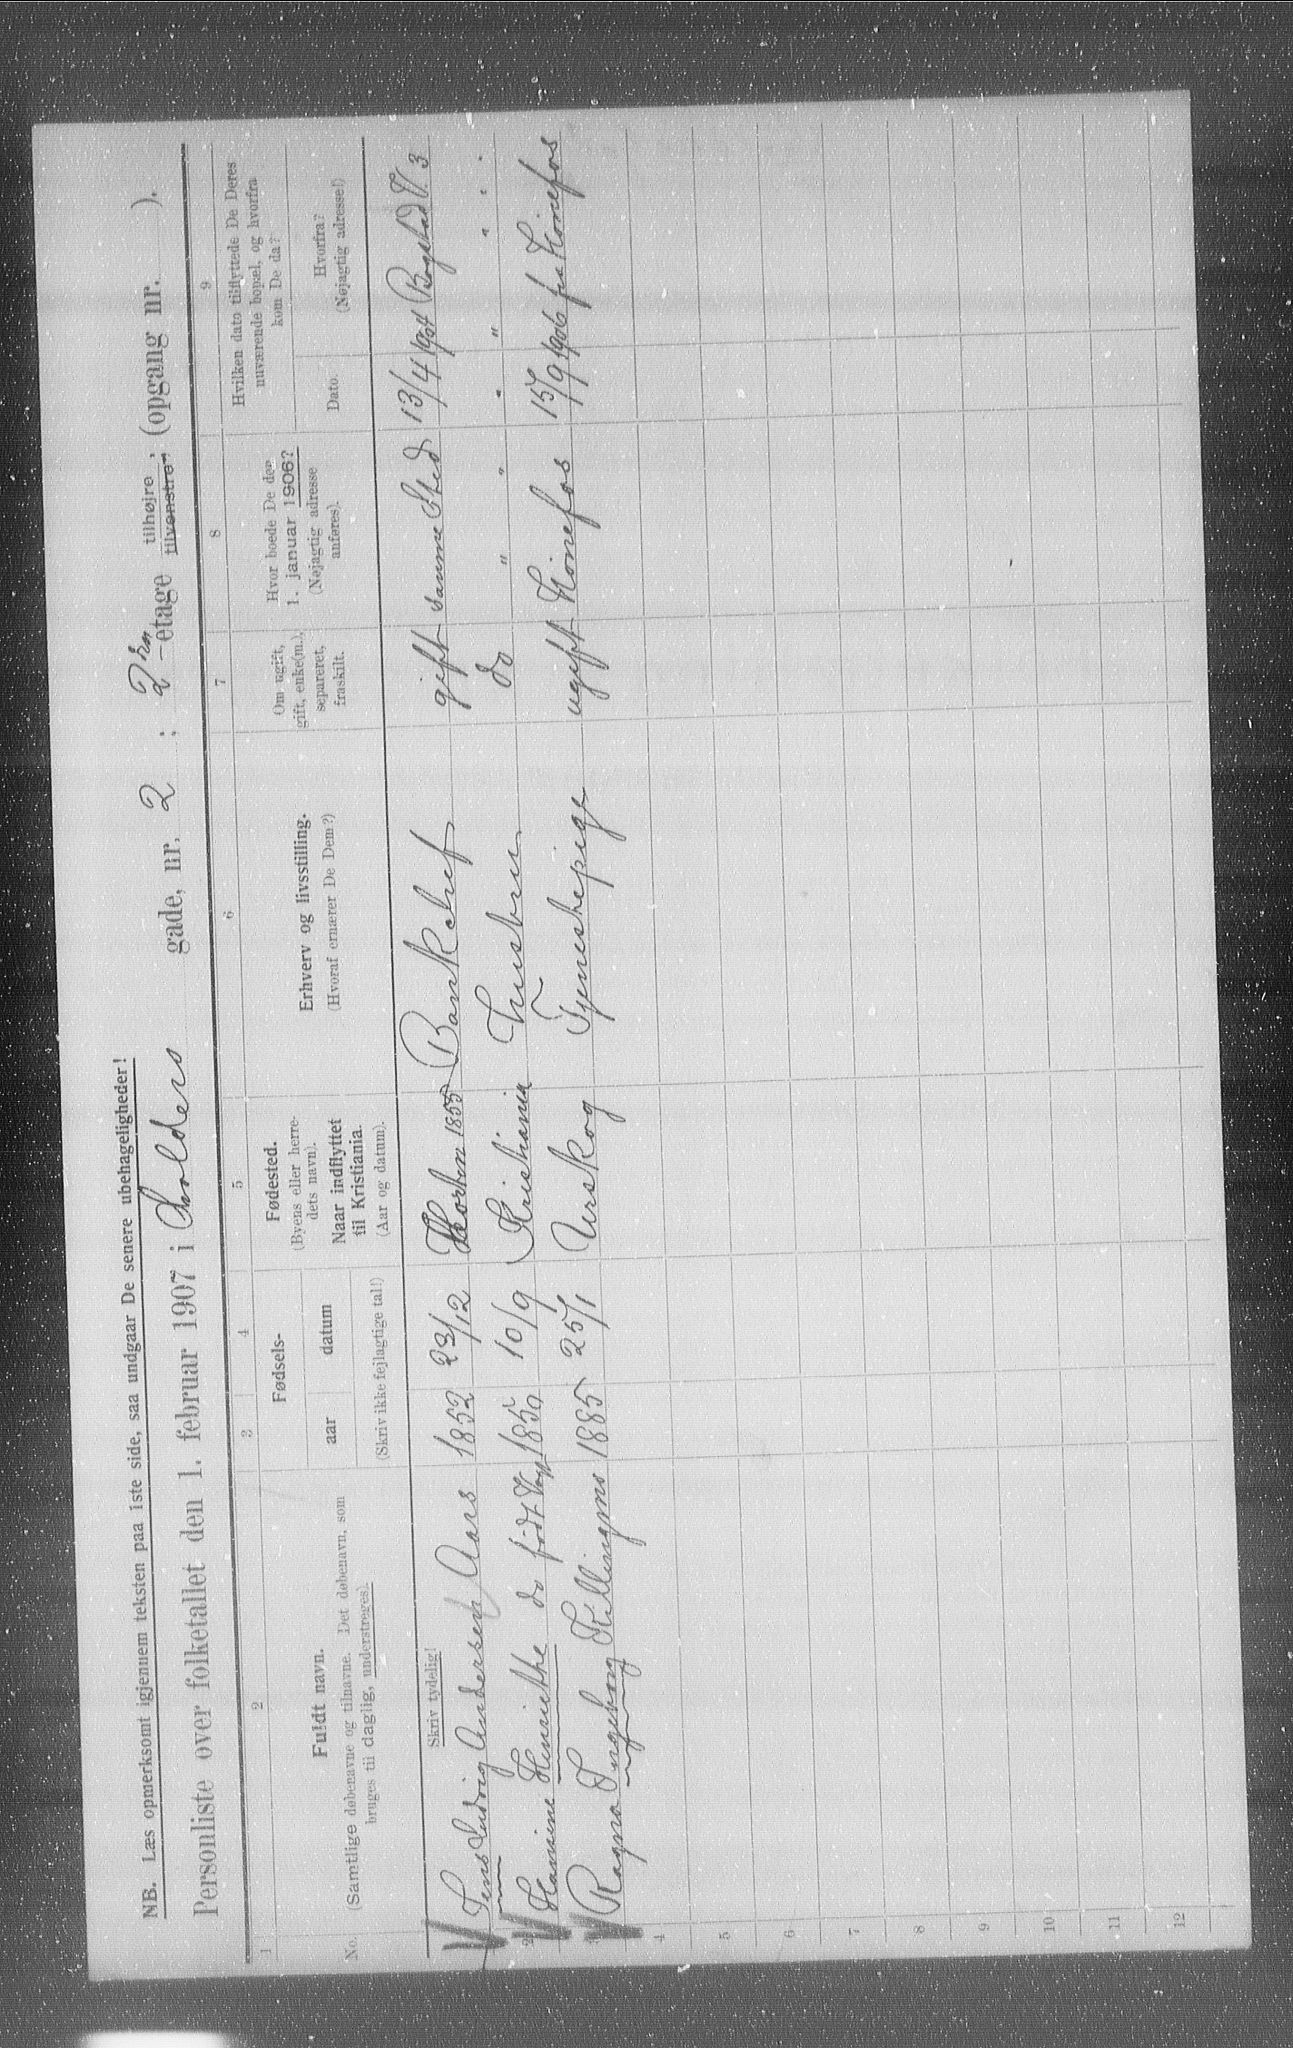 NB. Læs opmerksomt igjennem teksten paa 1ste side, saa undgaar De senere ubehageligheder!
Personliste over folketallet den 1. februar 1907 i Colders gade, nr. 2 ; 2den -etage tilhøjre, tilvenstre, (opgang nr. ).
1 2 3 4 5 6 7 8 9
No.
Fuldt navn.
(Samtlige døbenavne og tilnavne. Det døbenavn, som
bruges til daglig, understreges).
Fødsels-
aar datum
(Skriv ikke fejlagtige tal!)
Fødested.
(Byens eller herre-
dets navn).
Naar indflyttet
til Kristiania.
(Aar og datum).
Erhverv og livsstilling.
(Hvoraf ernærer De Dem?)
Om ugift,
gift, enke(m.),
separeret,
fraskilt.
Hvor boede De den
1. januar 1906?
(Nøjagtig adresse
anføres).
Hvilken dato tilflyttede De Deres
nuværende bopæl, og hvorfra
kom De da?
Dato.
Hvorfra?
(Nøjagtig adresse!)
Skriv tydelig!
Jens Ludvig Andersen Aars 1852 23/12 Horten 1855 Bankchef gift samme Sted 13/4 1904 Bogstad V. 3
2 Hansine Henriette do født 1850 10/9 Kristiania Hustru do " " " " " " "
3 Ragna Ingeborg Killingmo 1885 25/1 Urskog Tjenestepige ugift Hönefos 15/9 1906 fra Hönefos
4
5
6
7
8
9
10
11
12